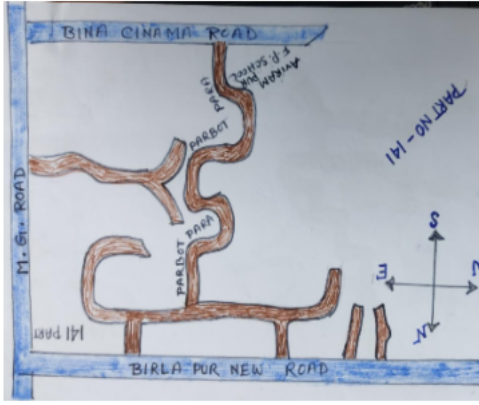 BINA CINAMA ROAD
AVIRAM PUR
F.P. SCHOOL
PARA
PARBOT
PART NO-141
M.G. ROAD
PARBOT PARA
S
E
N
141 PART
BIRLA PUR NEW ROAD